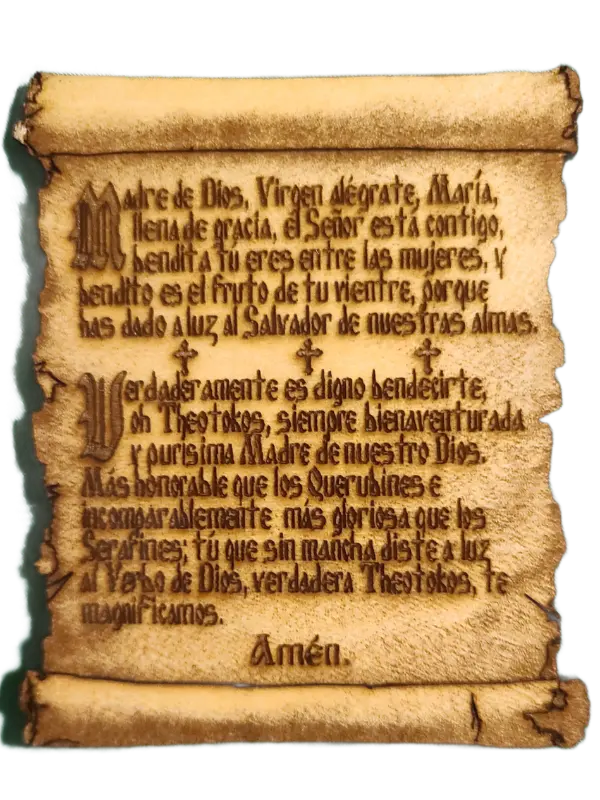 Madre de Dios, Virgen alégrate, María,
llena de gracia, el Señor está contigo,
bendita tú eres entre las mujeres, y
bendito es el fruto de tu vientre, porque
has dado a luz al Salvador de nuestras almas.
Verdaderamente es digno bendecirte,
oh Theotokos, siempre bienaventurada
y purísima Madre de nuestro Dios.
Más honorable que los Querubines e
incomparablemente más gloriosa que los
Serafines; tú que sin mancha diste a luz
al Verbo de Dios, verdadera Theotokos, te
magnificamos.
Amén.